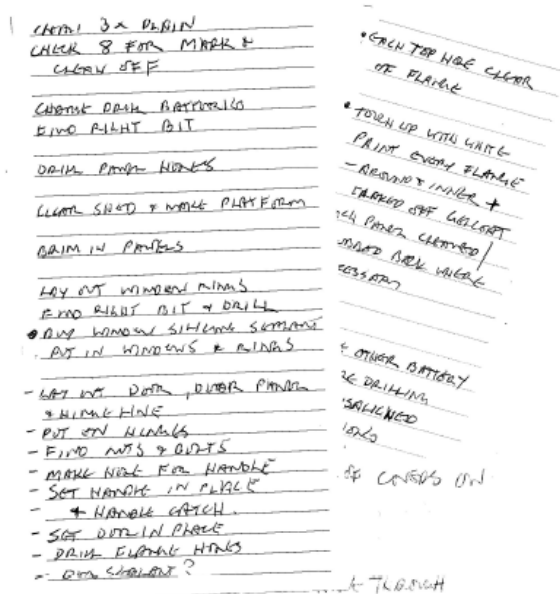 3 x PLAIN
CHECK 8 FOR MARK &
CLEAN OFF
CHANGE DRILL BATTERIES
FIND RIGHT BIT
DRILL PANEL HOLES
CLEAR SHED & MAKE PLATFORM
BRING IN PANELS
LAY OUT WINDOW RINGS
FIND RIGHT BIT & DRILL
• BUY WINDOW SILICONE SEALANT
PUT IN WINDOWS & RINGS
- LAY OUT DOOR, DOOR PANEL
& HINGE LINE
- PUT ON HINGES
- FIND NUTS & BOLTS
- MAKE HOLE FOR HANDLE
- SET HANDLE IN PLACE
- & HANDLE CATCH.
- SET DOOR IN PLACE
- DRILL FLANGE HOLES
- SEALANT?
• EACH TOP HOLE CLEAR
OF FLANGE
• TOUCH UP WITH WHITE
PAINT EVERY FLANGE
- AROUND & INNER +
OFF
PANEL CLEANED
BACK WHERE
OTHER BATTERY
DRILLING
COVERS ON